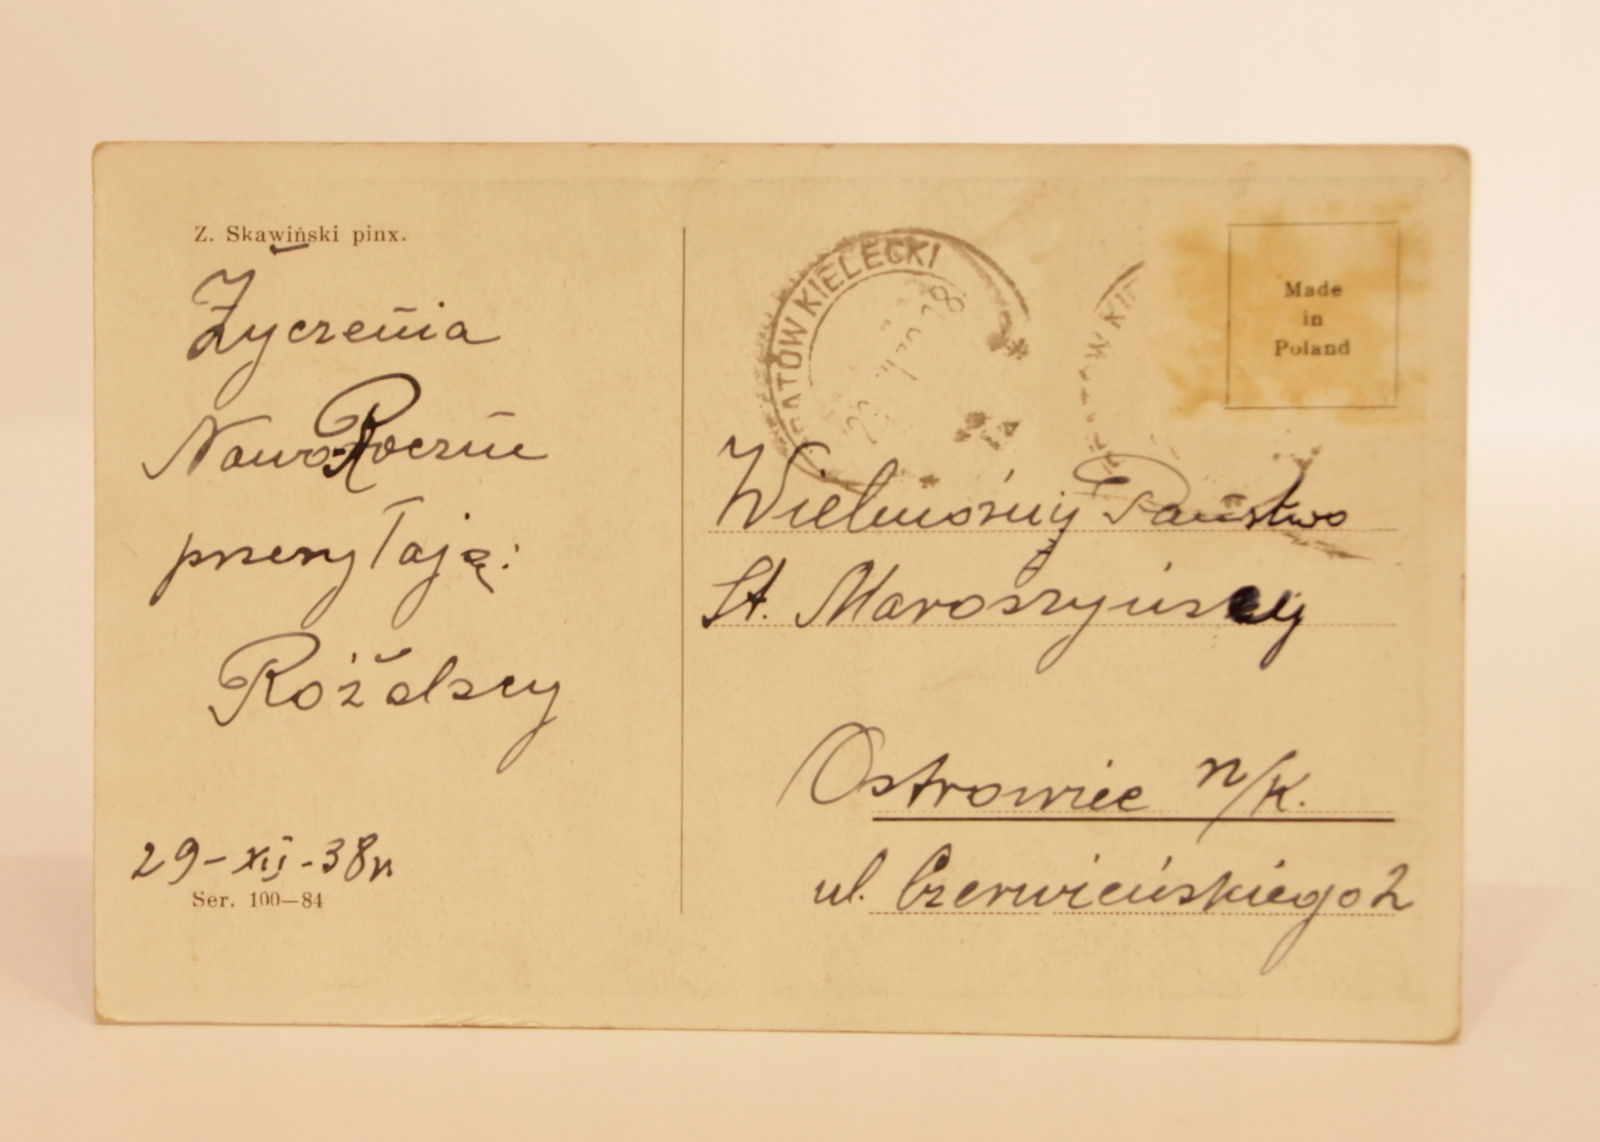 Z. Skawiński pinx.
Życzenia
NowoRoczne
przesyłają:
Różalscy
29-XII-38r
Ser. 100—84
KIELECKI
Made
in
Poland
Wielmożny Państwo
St. Maroszyńscy
Ostrowiec n/K.
ul. Czerwieńskiego 2